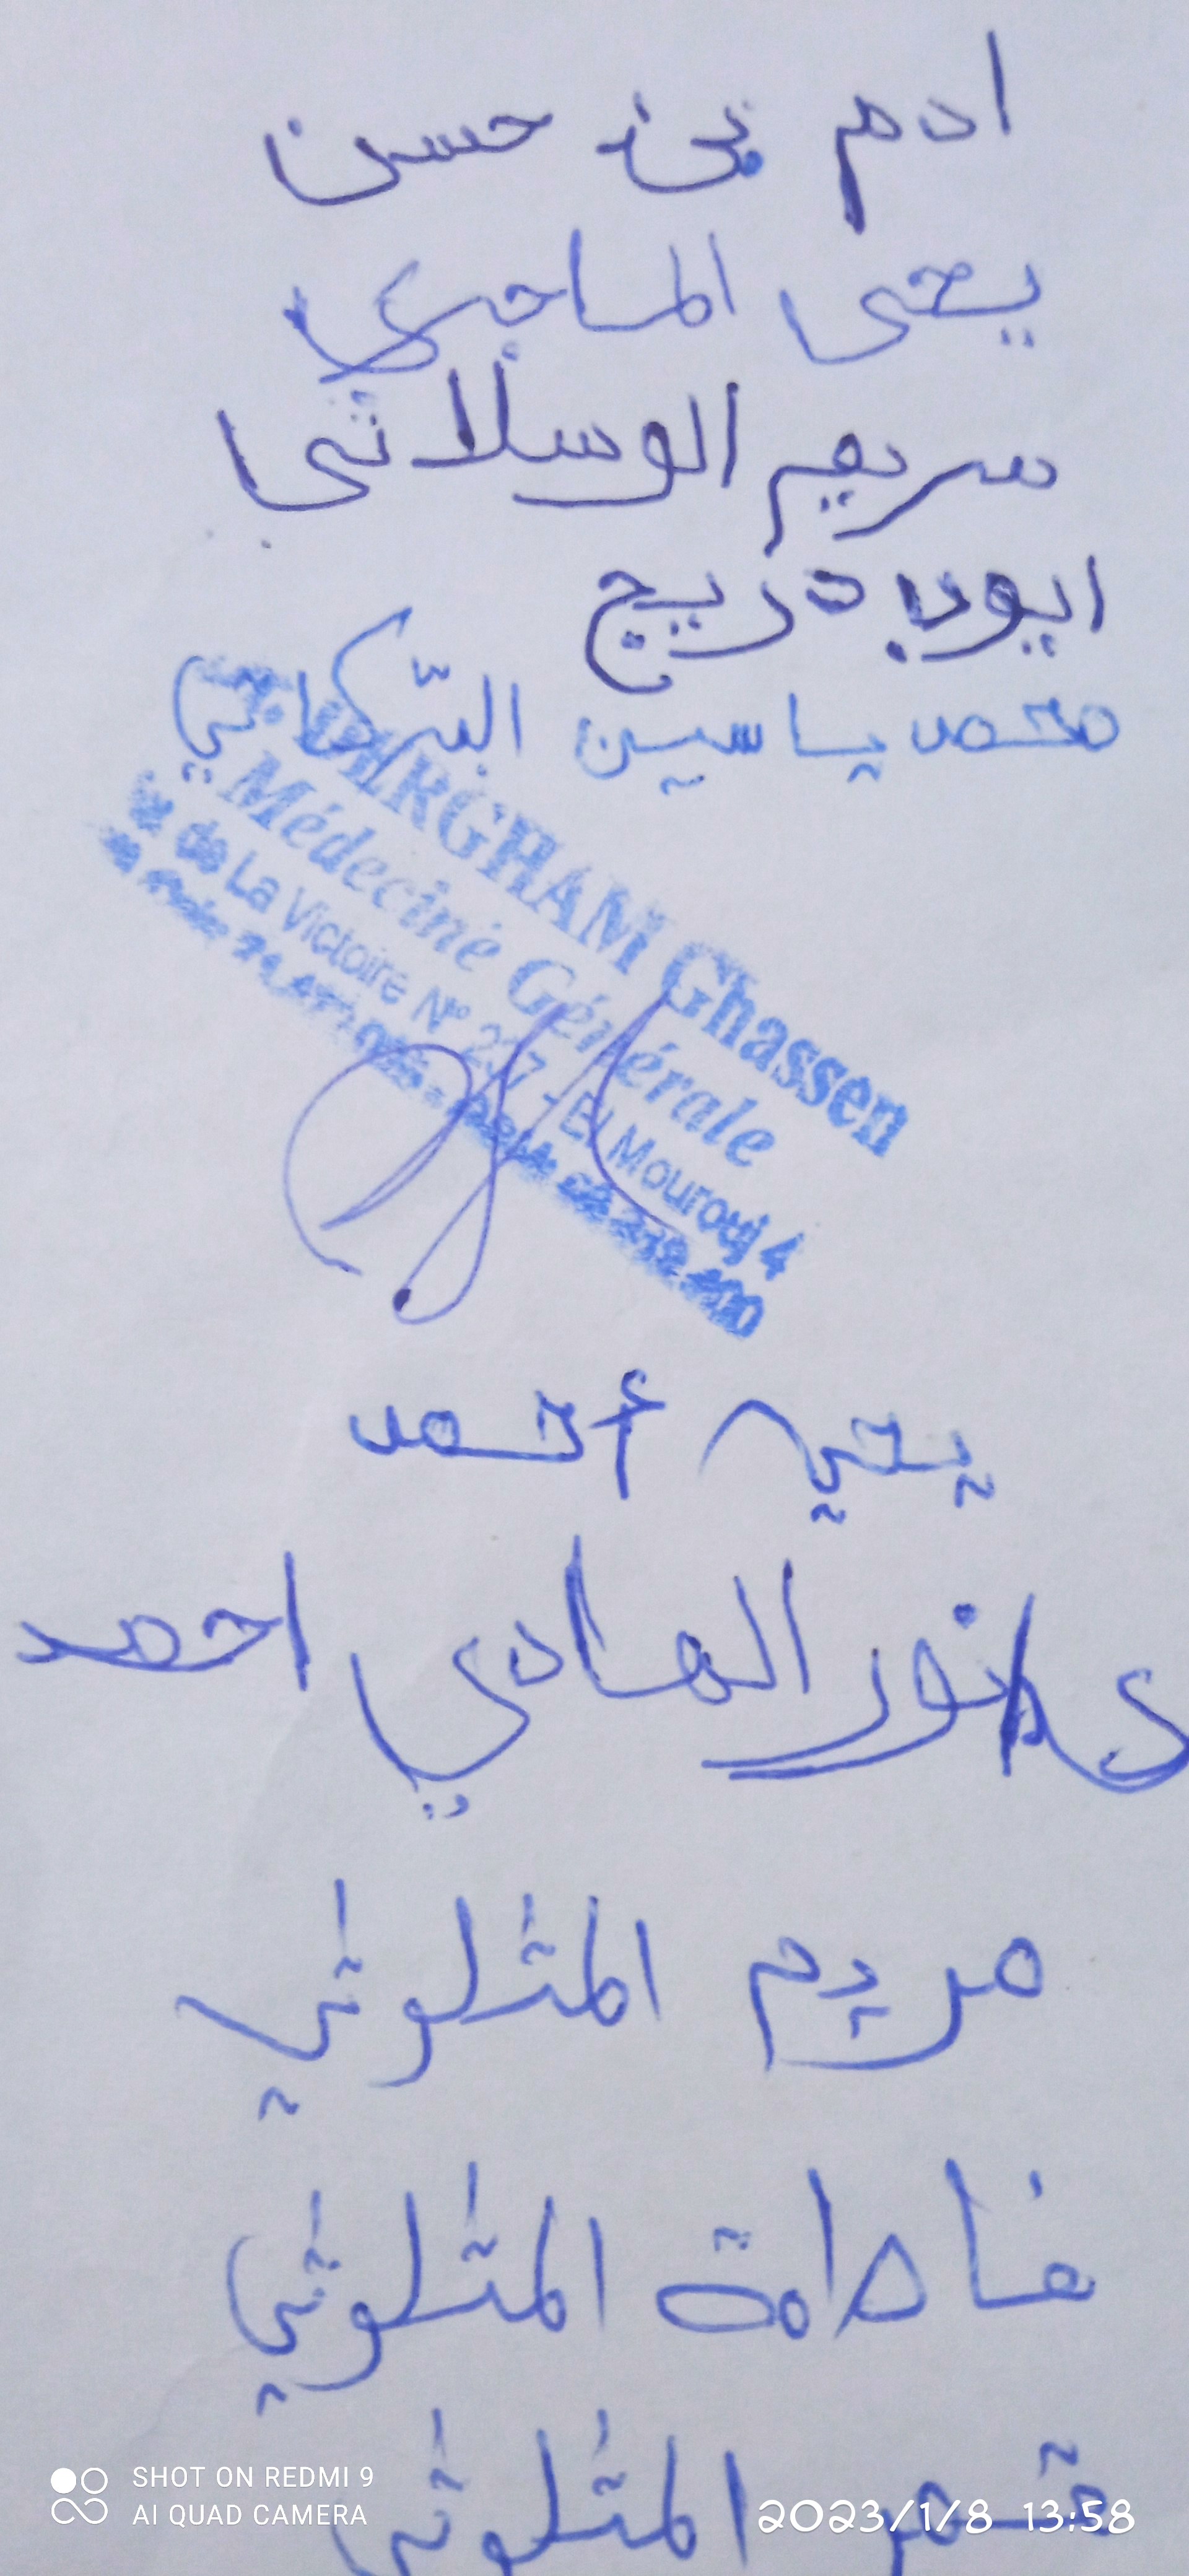 ادم بن حسن
يحى الماجري
مريم الوسلاتي
ايوب دريج
محمد ياسين التركاتي
DERGHAM Ghassen
Médecine Générale
de La Victoire N° 237 - El Mourouj 4
يحي أحمد
نور الهادي احمد
مريم المثلوثي
فاطمة المثلوثي
المثلوثي
SHOT ON REDMI 9
AI QUAD CAMERA
2023/1/8 13:58